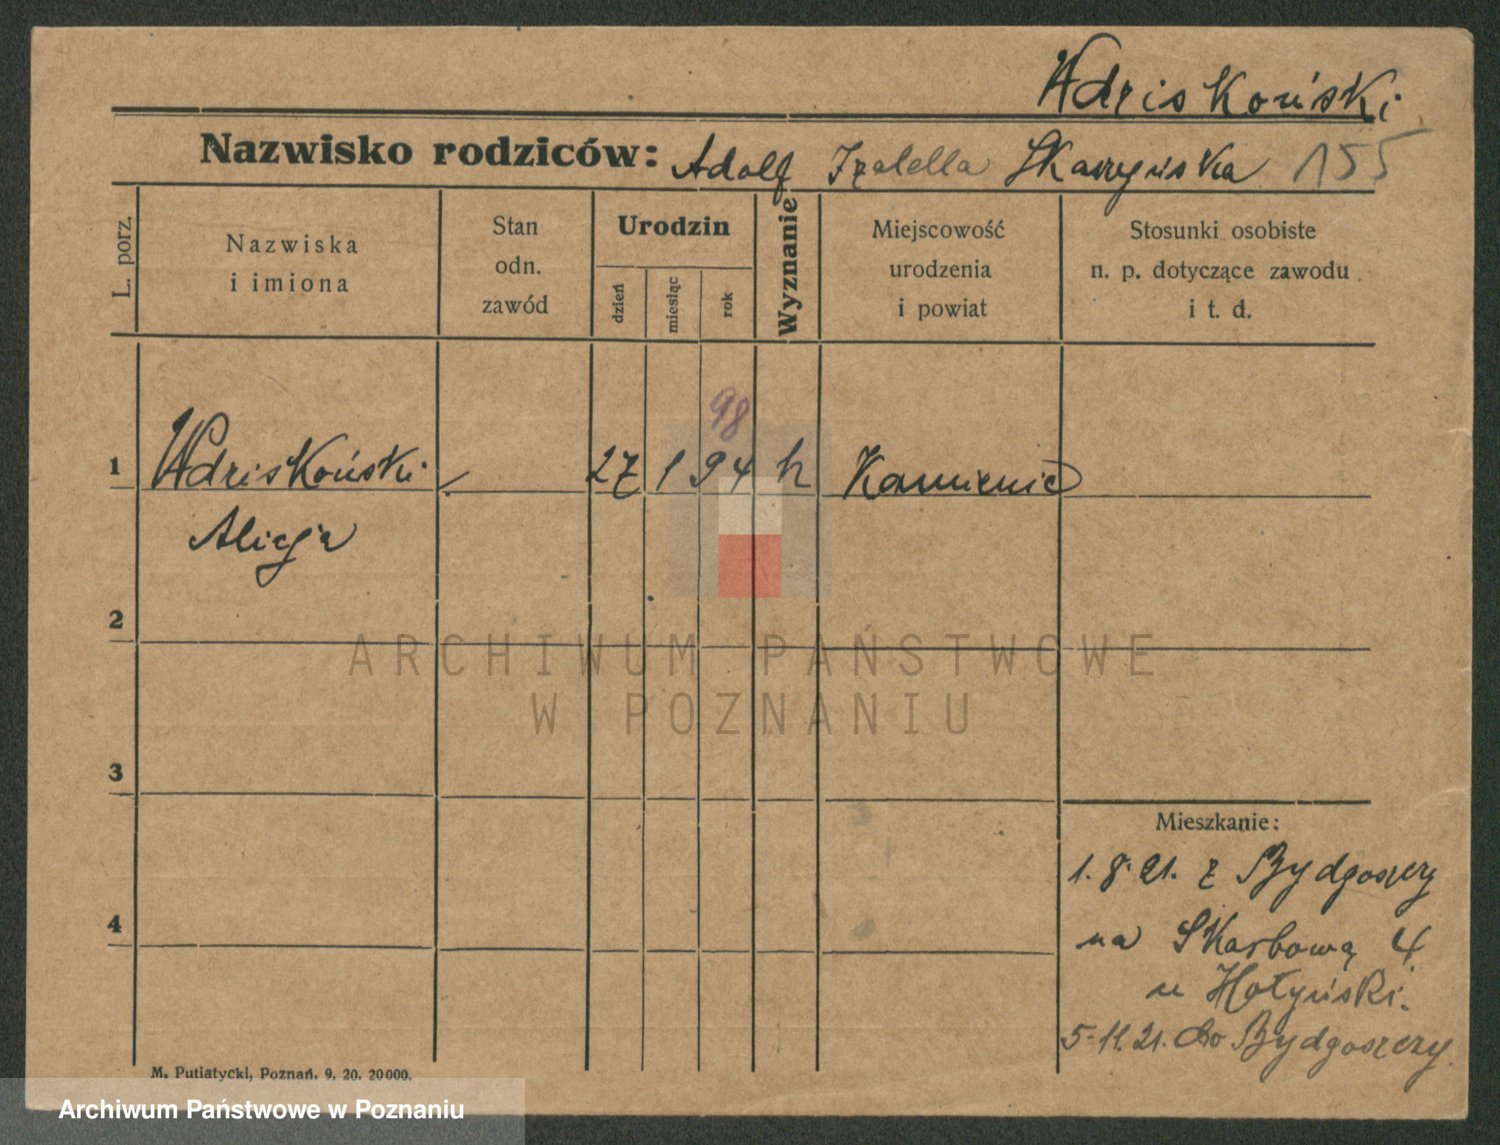 Wdziskoński
Nazwisko rodziców: Adolf Izabella Skarzyńska 155
L. porz.
Nazwiska
i imiona
Stan
odn.
zawód
Urodzin
dzień
miesiąc
rok
Wyznanie
Miejscowość
urodzenia
i powiat
Stosunki osobiste
n. p. dotyczące zawodu
i t. d.
98
1 Wdziskoński 27 1 94 k Kamienic
Alicja
2
3
4
Mieszkanie:
1.8.21. z Bydgoszczy
na Skarbową 4
u Hołyński.
5-11.21. do Bydgoszczy.
M. Putiatycki, Poznań. 9. 20. 20000.
ARCHIWUM PAŃSTWOWE
W POZNANIU
Archiwum Państwowe w Poznaniu